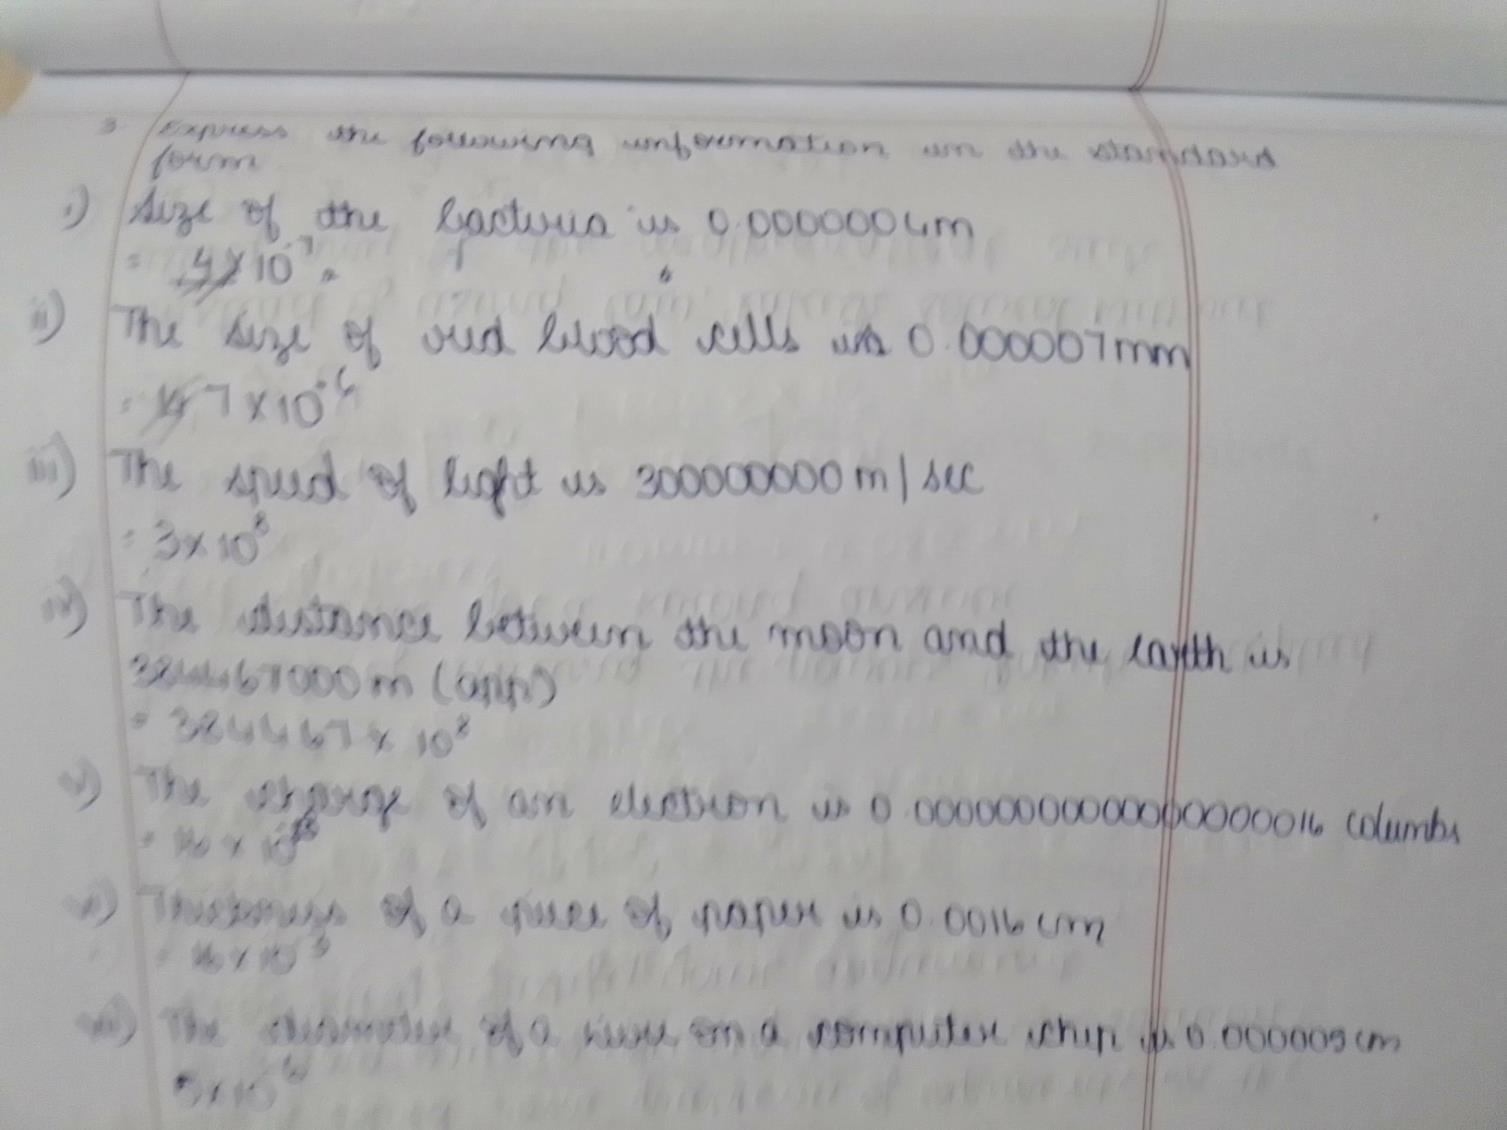 3 Express the following information in the standard
form
i) Size of the bacteria is 0.0000004m
= 4×10⁻⁷
ii) The size of red blood cells is 0.000007mm
= 7×10⁻⁶
iii) The speed of light is 300000000m/sec
= 3×10⁸
iv) The distance between the moon and the earth is
384467000m (app)
= 384467× 10⁸
v) The charge of an electron is columbs
= 16×
vi) Thickness of a piece of paper is 0.0016cm
= 16×10⁻³
vii) The diameter of a wire on a computer chip is 0.000005cm
5×10⁻⁶